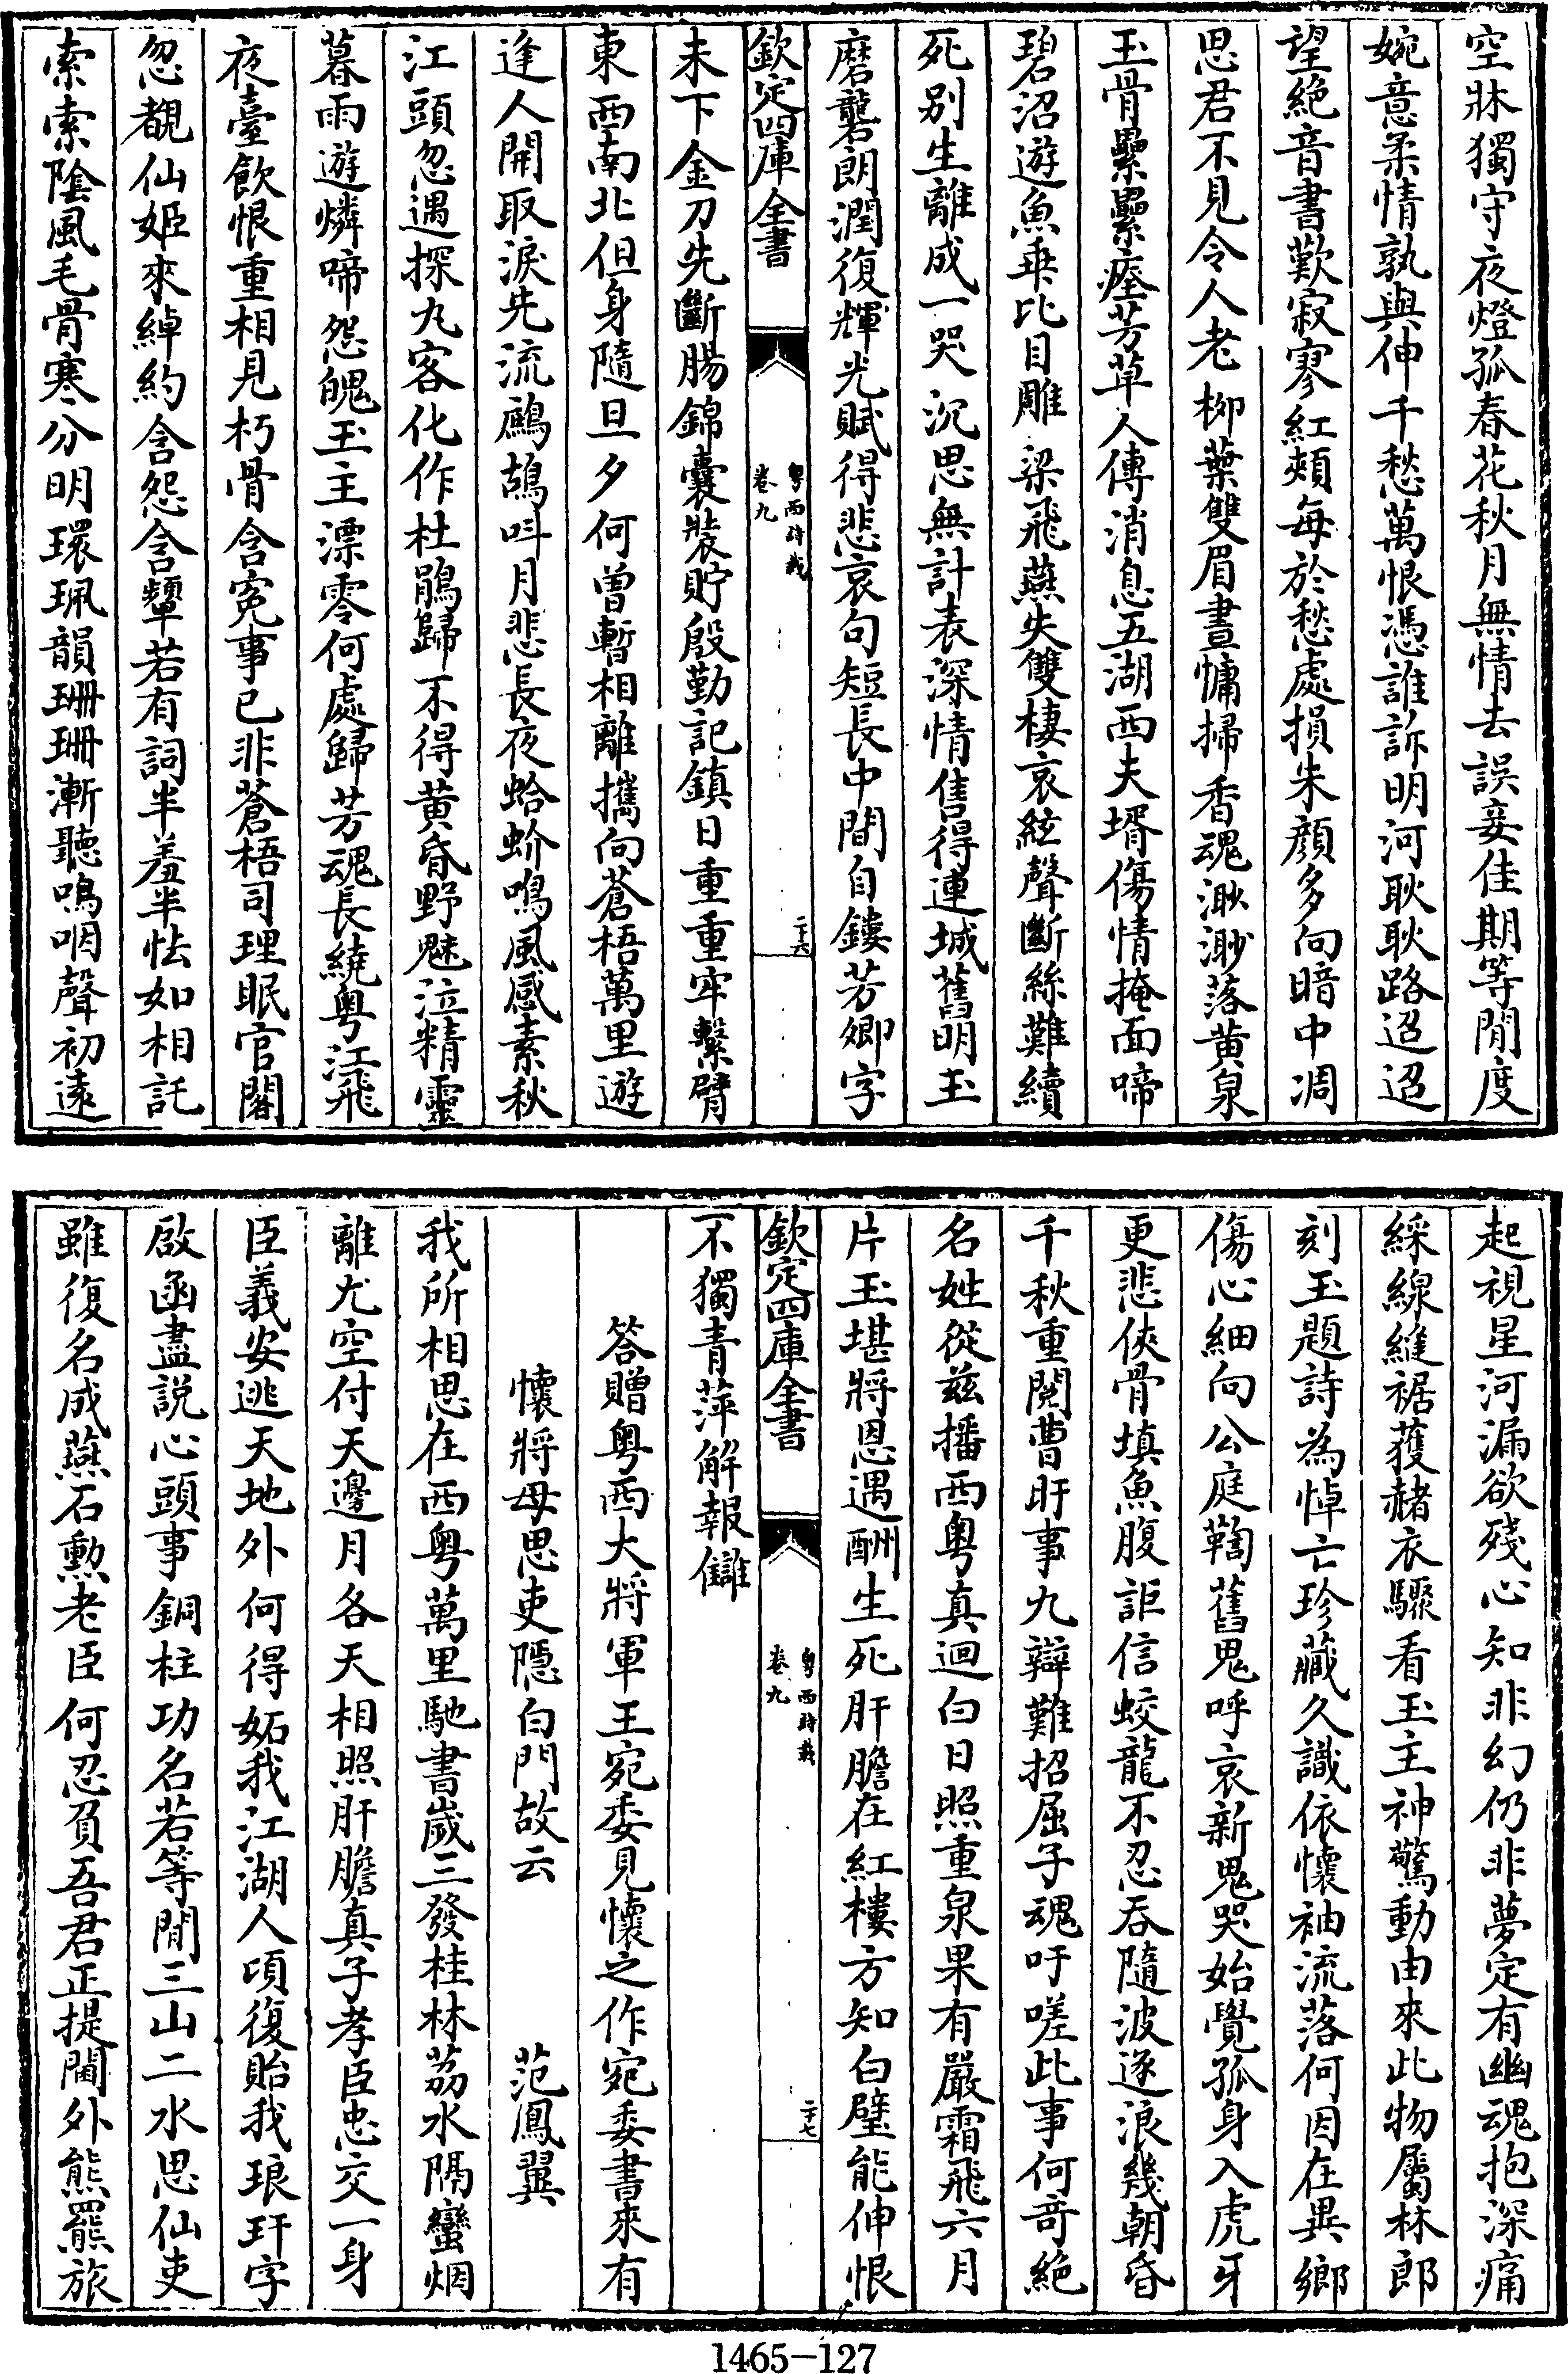 空牀獨守夜燈孤春花秋月無情去誤妾佳期等閒度
婉意柔情孰與伸千愁萬恨憑誰訴明河耿耿路迢迢
望絶音書歎寂寥紅頰每於愁處損朱顔多向暗中凋
思君不見令人老柳葉雙眉晝慵掃香魂渺渺落黄泉
玉骨纍纍瘞芳草人傳消息五湖西夫壻傷情掩面啼
碧沼遊魚乗比目雕梁飛燕失雙棲哀絃聲斷絲難續
死别生離成一哭沉思無計表深情售得連城舊明玉
磨礲朗潤復輝光賦得悲哀句短長中間自鏤芳卿字
欽定四庫全書
粤西詩載
卷九
二十六
未下金刀先斷腸錦囊裝貯殷勤記鎮日重重牢繫臂
東西南北但身隨旦夕何曽暫相離攜向蒼梧萬里遊
逢人開取淚先流鷓鴣呌月悲長夜蛤蚧鳴風感素秋
江頭忽遇探丸客化作杜鵑歸不得黄昏野魅泣精靈
暮雨遊燐啼怨魄玉主漂零何處歸芳魂長繞粤江飛
夜臺飲恨重相見朽骨含寃事已非蒼梧司理眠官閣
忽覩仙姬來綽約含怨含顰若有詞半羞半怯如相託
索索陰風毛骨寒分明環珮韻珊珊漸聽鳴咽聲初逺
起視星河漏欲殘心知非幻仍非夢定有幽魂抱深痛
綵線縫裾獲赭衣驟看玉主神驚動由來此物屬林郎
刻玉題詩為悼亡珍藏久識依懷袖流落何因在異鄉
傷心細向公庭鞫舊鬼呼哀新鬼哭始覺孤身入虎牙
更悲俠骨填魚腹詎信蛟龍不忍吞隨波逐浪幾朝昏
千秋重閲曹盱事九辯難招屈子魂吁嗟此事何竒絶
名姓從兹播西粤真迴白日照重泉果有嚴霜飛六月
片玉堪將恩遇酬生死肝膽在紅樓方知白璧能伸恨
欽定四庫全書
粤西詩載
卷九
二十七
不獨青萍解報讎
答贈粤西大將軍王宛委見懷之作宛委書來有
懷將母思吏隱白門故云 范鳳翼
我所相思在西粤萬里馳書嵗三發桂林荔水隔蠻烟
離尤空付天邊月各天相照肝膽真子孝臣忠交一身
臣義安逃天地外何得妬我江湖人頃復貽我琅玕字
啟函盡説心頭事銅柱功名若等閒三山二水思仙吏
雖復名成燕石勲老臣何忍負吾君正提閫外熊羆旅
1465-127